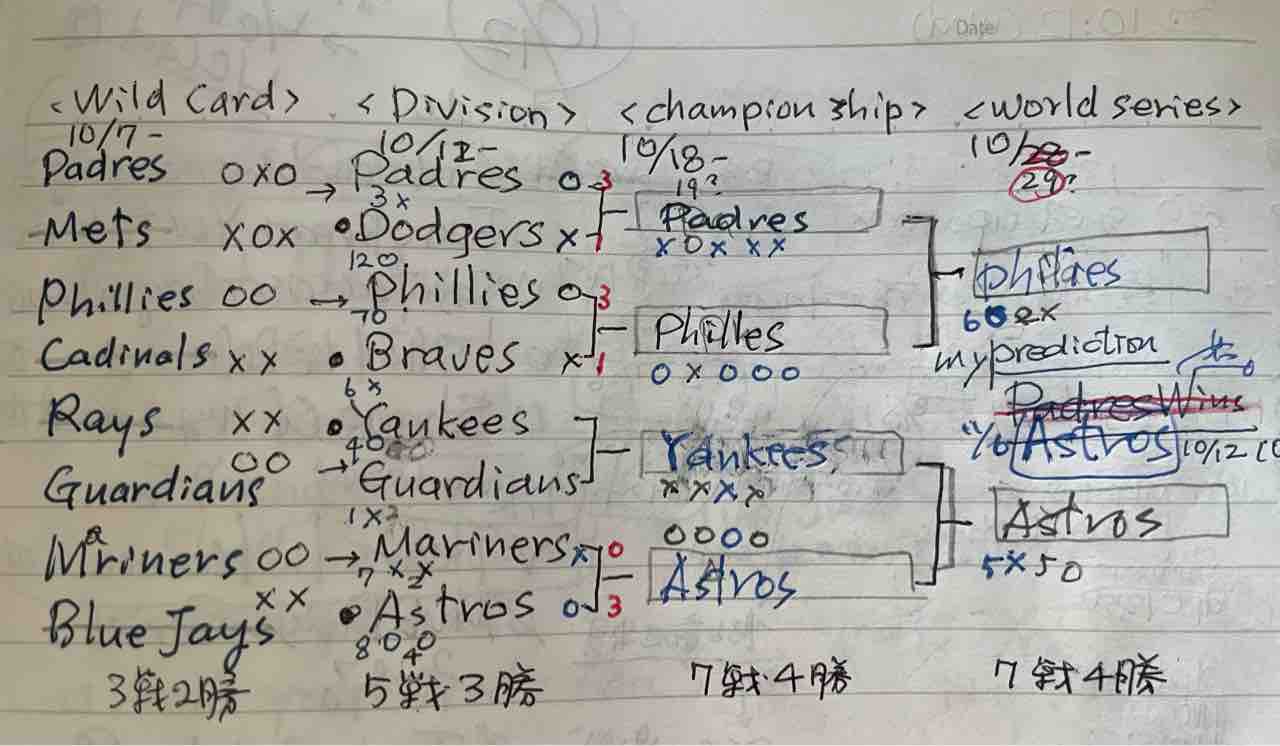 Date
<Wild Card> <Division> <champion ship> <world series>
10/7- 10/12- 10/18- 10/28-
19? 29?
Padres OXO → Padres O 3 Padres
3 X
Mets XOX •Dodgers X 1 X O X X X
12 O
Phillies OO → Phillies O 3 Philles phillies
7 O
Cadinals XX • Braves X 1 O X O O O 6 O
my prediction
6 X
Rays XX • Yankees Yankees Padres Wins
4 O
Guardians OO → Guardians X X X X Astros 10/12
1 X 2
Mariners OO → Mariners X 0 O O O O Astros
7 X X 2 5 X 5 O
Blue Jays XX • Astros O 3 Astros
8 O O 4
3戦2勝 5戦3勝 7戦4勝 7戦4勝